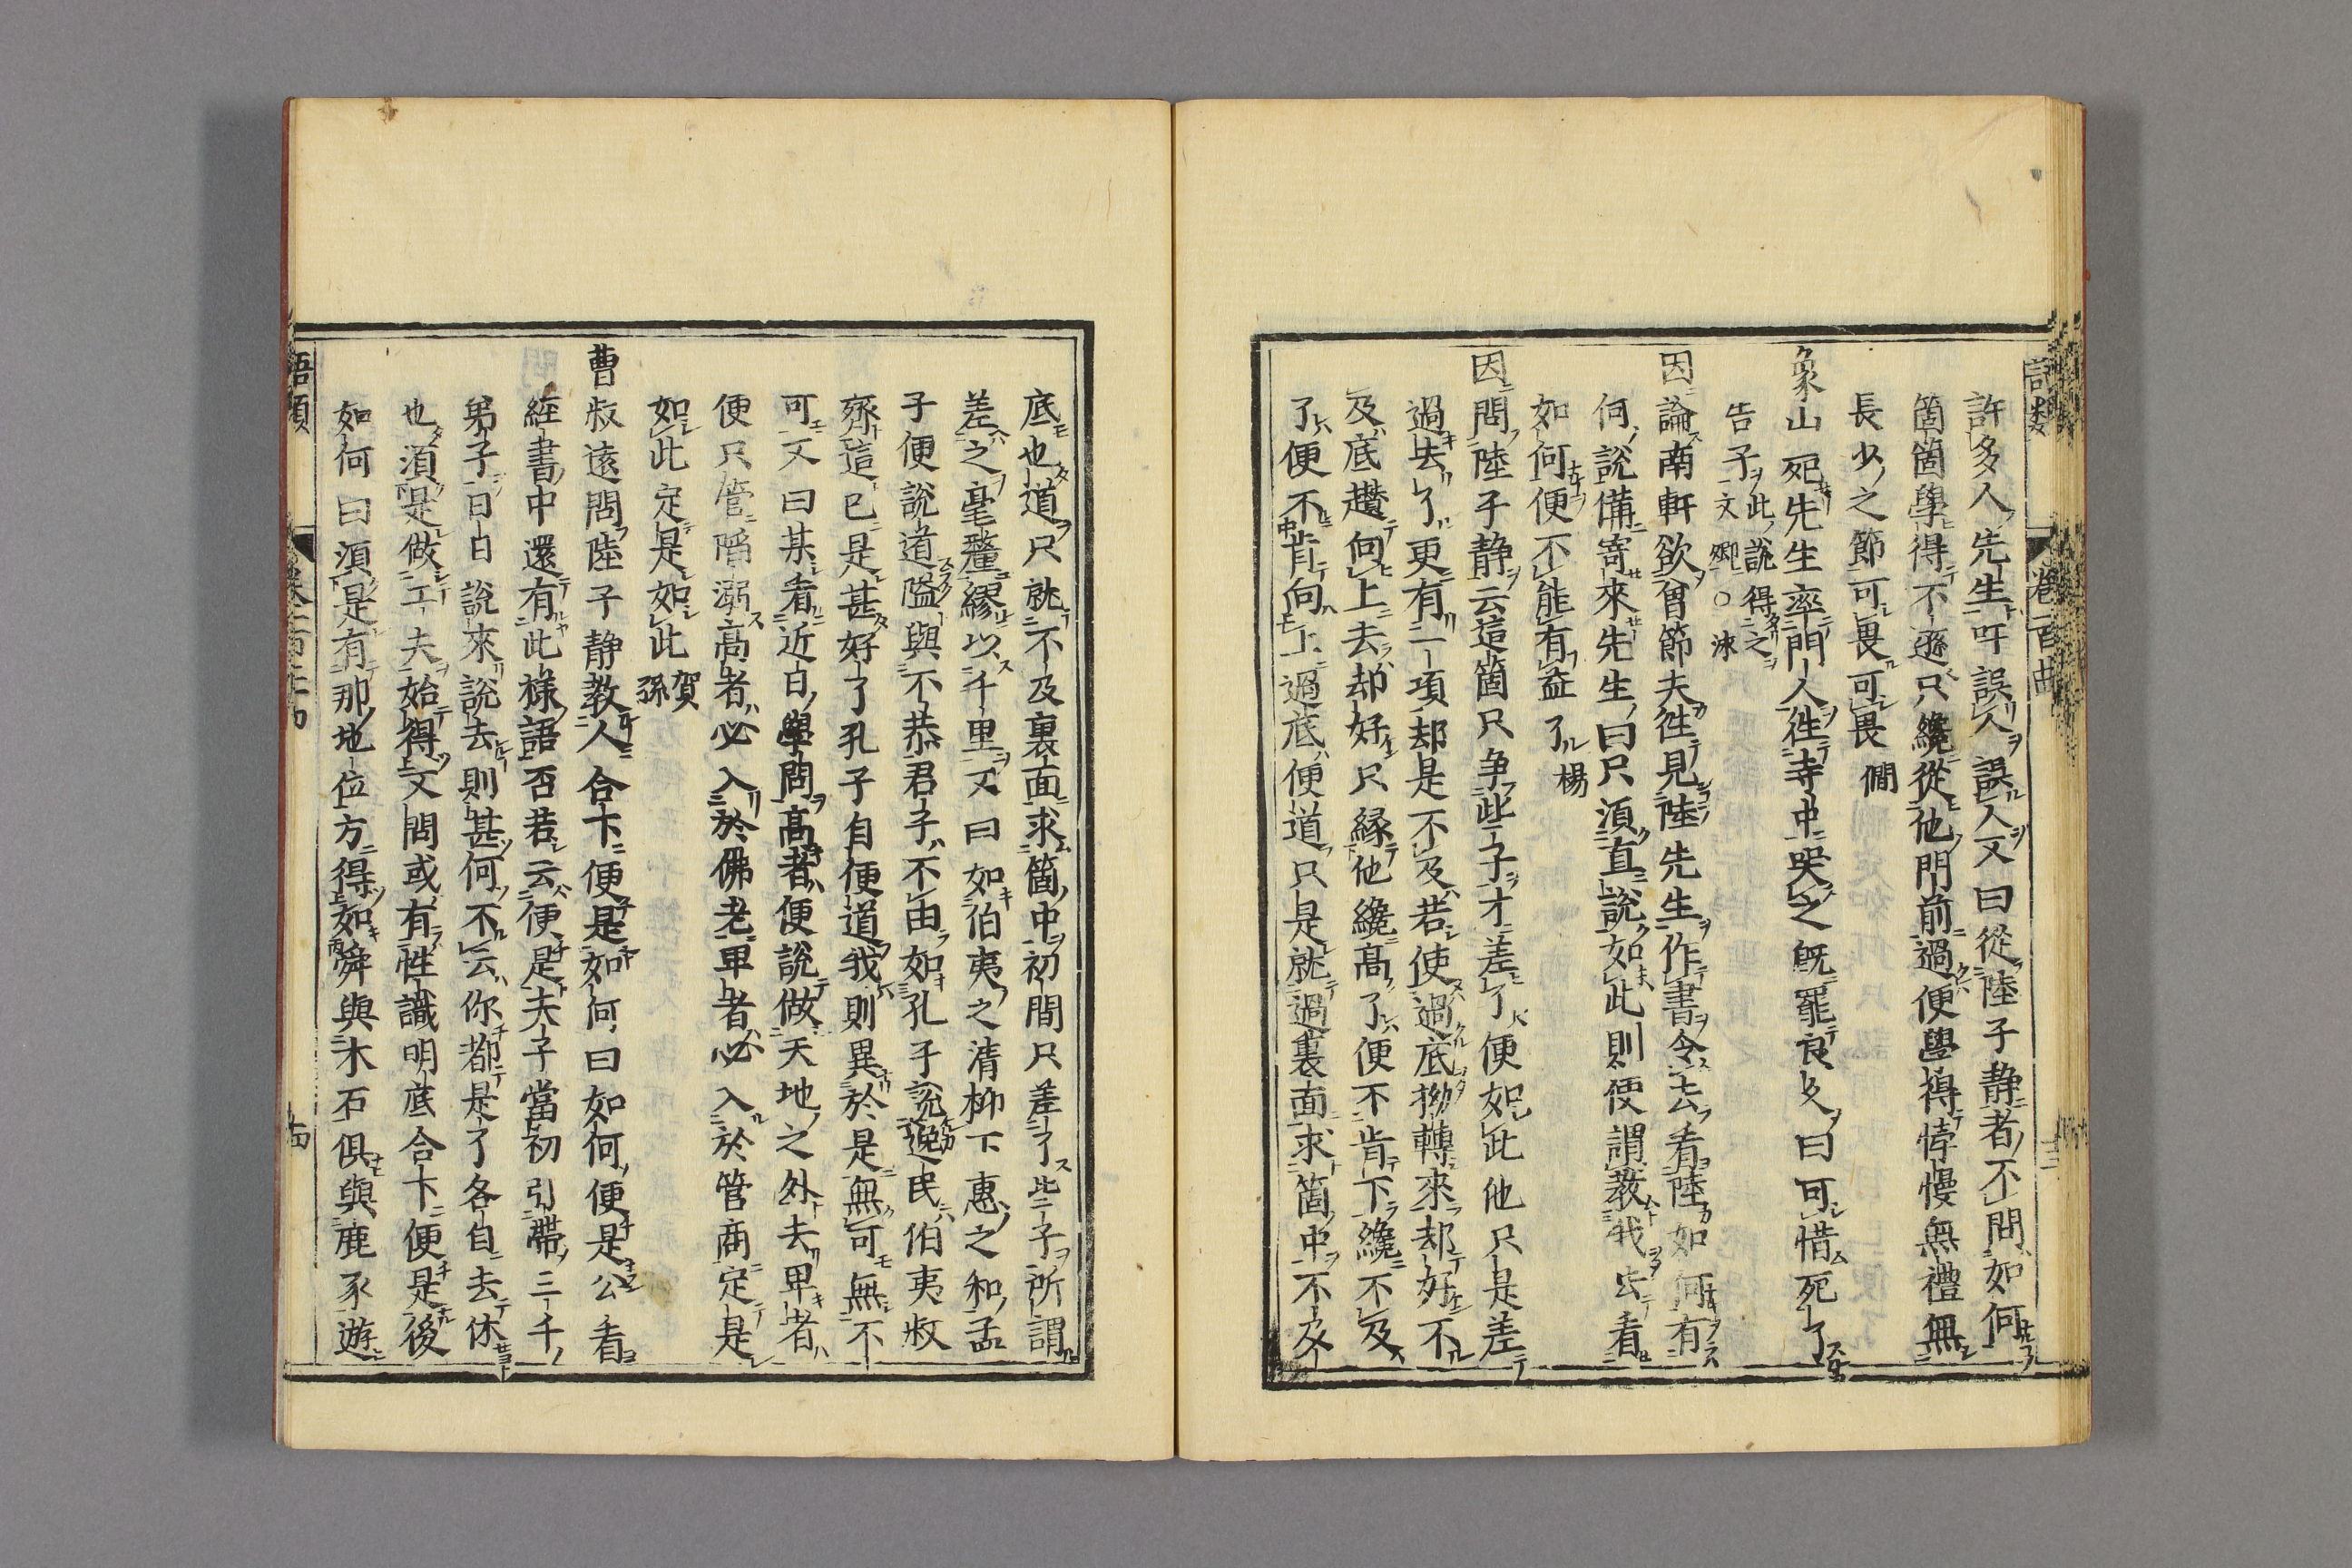 許多人先生吁誤人誤人又曰從陸子静者不問如何
箇箇學得不遜只纔從他門前過便學得悖慢無禮無
長少之節可畏可畏 僩
象山死先生率門人徃寺中哭之既罷良久曰可惜死了
告子此說得之
文卿○泳
因論南軒欲曾節夫徃見陸先生作書令去看陸如何有
何說備寄來先生曰只湏直說如此則便謂教我去看
如何便不能有益了 楊
因問陸子静云這箇只争些子才差了便如此他只是差
過去了更有一項却是不及若使過底拗轉來却好不
及底趲向上去却好只縁他纔高了便不肯下纔不及
了便不肯向上過底便道只是就過裏面求箇中不及
底也道只就不及裏面求箇中初間只差了些子所謂
差之毫釐繆以千里又曰如伯夷之清柳下惠之和孟
子便說道隘與不恭君子不由如孔子說逸民伯夷叔
齊這已是甚好了孔子自便道我則異於是無可無不
可又曰某看近日學問高者便說做天地之外去卑者
便只管陷溺高者必入於佛老卑者必入於管商定是
如此定是如此 賀孫
曹叔遠問陸子静教人合下便是如何曰如何便是公看
經書中還有此様語否若云便是夫子當初引帶三千
弟子日日說來說去則甚何不云你都是了各自去休
也湏是做工夫始得又問或有性識明底合下便是後
如何曰湏是有那地位方得如舜與木石俱與鹿豕遊
語類